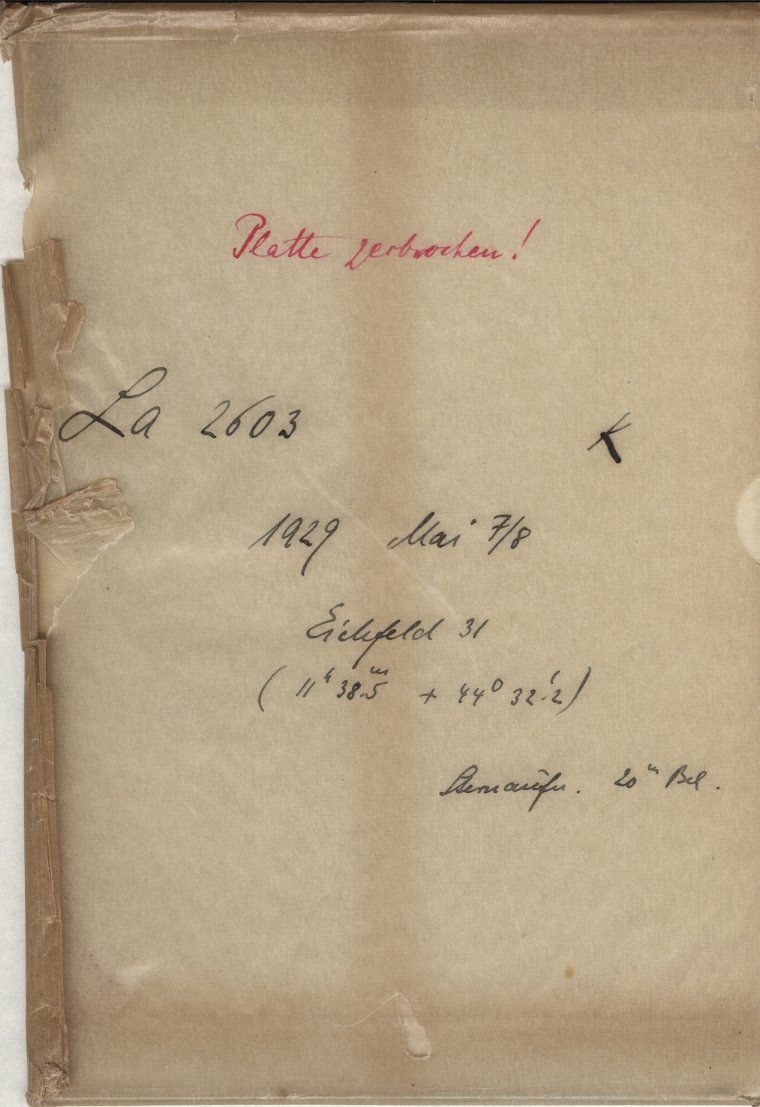 Platte zerbrochen!
La 2603 K
1929 Mai 7/8
Eichfeld 31
(11ʰ 38ᵐ.5 + 44⁰ 32'.2)
Sternaufn. 20ᵐ Bel.